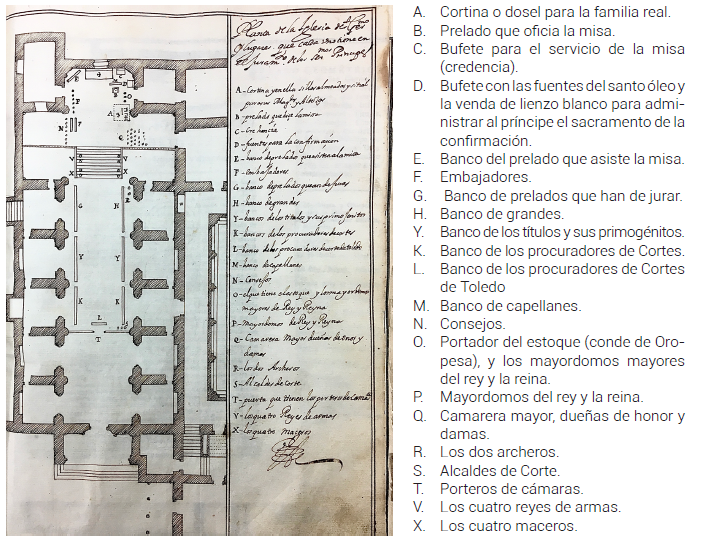 Planta de la Iglesia de
y lugares que cada uno tiene en
el Juramto de los Principes
A - Cortina
B - prelado que dize la missa
C - Credencia
D - fuentes para la confirmacion
E - banco de prelado que asiste a la missa
F - embajadores
G - banco de prelados que an de jurar
H - banco de grandes
Y - bancos de los titulos y sus primogenitos
K - bancos de los procuradores de cortes
L - banco de los procuradores de cortes de toledo
M - banco de capellanes
N - Consejos
O - el que tiene el estoque y los mayordomos
mayores de Rey y Reyna
P - Mayordomos de Rey y Reyna
Q - Camarera Mayor dueñas de onor y
damas
R - los dos Archeros
S - Alcaldes de corte
T - puerta que tienen los porteros de camara
V - los quatro Reyes de armas
X - los quatro Maceros
A. Cortina o dosel para la familia real.
B. Prelado que oficia la misa.
C. Bufete para el servicio de la misa
(credencia).
D. Bufete con las fuentes del santo óleo y
la venda de lienzo blanco para admi-
nistrar al príncipe el sacramento de la
confirmación.
E. Banco del prelado que asiste la misa.
F. Embajadores.
G. Banco de prelados que han de jurar.
H. Banco de grandes.
Y. Banco de los títulos y sus primogénitos.
K. Banco de los procuradores de Cortes.
L. Banco de los procuradores de Cortes
de Toledo
M. Banco de capellanes.
N. Consejos.
O. Portador del estoque (conde de Oro-
pesa), y los mayordomos mayores
del rey y la reina.
P. Mayordomos del rey y la reina.
Q. Camarera mayor, dueñas de honor y
damas.
R. Los dos archeros.
S. Alcaldes de Corte.
T. Porteros de cámaras.
V. Los cuatro reyes de armas.
X. Los cuatro maceros.